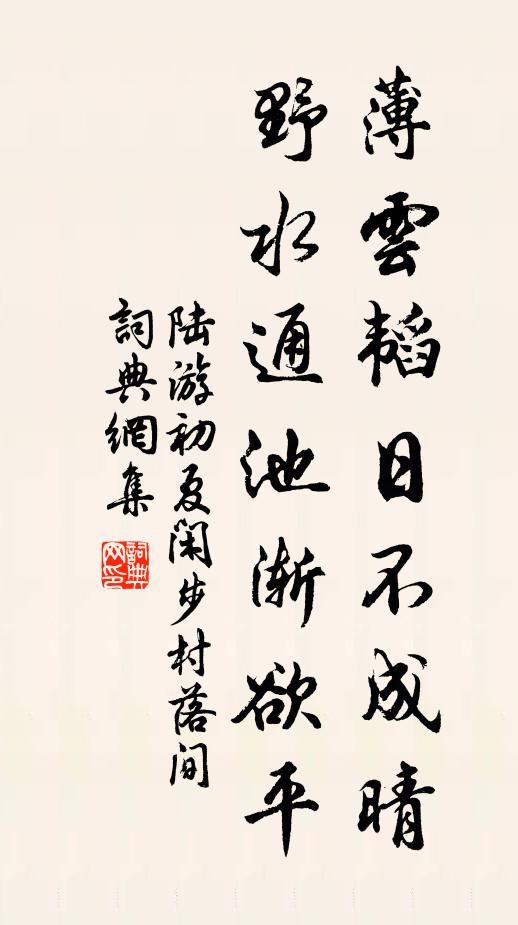 薄雲韜日不成晴
野水通池漸欲平
陸游初夏閑步村落間
詞典網集
詞典网印